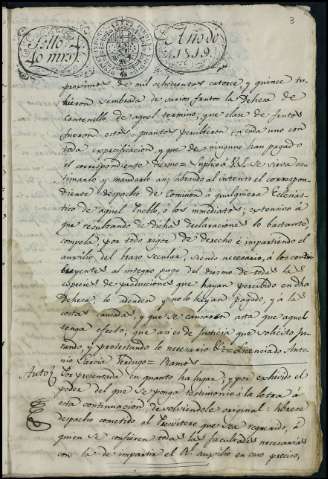 3
Sello 4o
40 mrs.
Año de
1819.
proximos de mil ochocientos catorce y quince tu-
bieron sembrada de varios frutos la Dehesa de
Contenillo de aquel termino; que clase de frutos
fueron estos, y quantos percibieron cada uno con
toda expecificacion y que de ninguno han pagado
el correspondiente Diezmo. Suplico á V.S. se sirva es-
timarlo y mandarlo asi, abriendo al intento el correspon-
diente despacho de Comision á qualquiera Eclesias-
tico de aquel Pueblo, ó los inmediatos, extensivo á
que resultando de dichas declaraciones lo bastante
compela por todo rigor de derecho é impartiendo el
auxilio del brazo secular, siendo necesario, á los contri-
buyentes al integro pago del diezmo de todas las
especies de producciones que hayan percibido en dha
dehesa, lo adeuden y no lo hayan pagado, y á las
costas causadas, y que se causaren hasta que aquel
tenga efecto; que asi es de Justicia que solicito ju-
rando y protestando lo necesario &a Licenciado Anto-
nio Garcia = Ramos
Auto) Por presentada en quanto ha lugar; y por exhivido el
poder del que se ponga testimonio á la letra á
esta continuacion debolviendole original: librese
despacho cometido al Presvitero que sea requerido, á
quien se confieren todas las facultades necesarias
con la de impartir el Rl. auxilio en caso preciso,